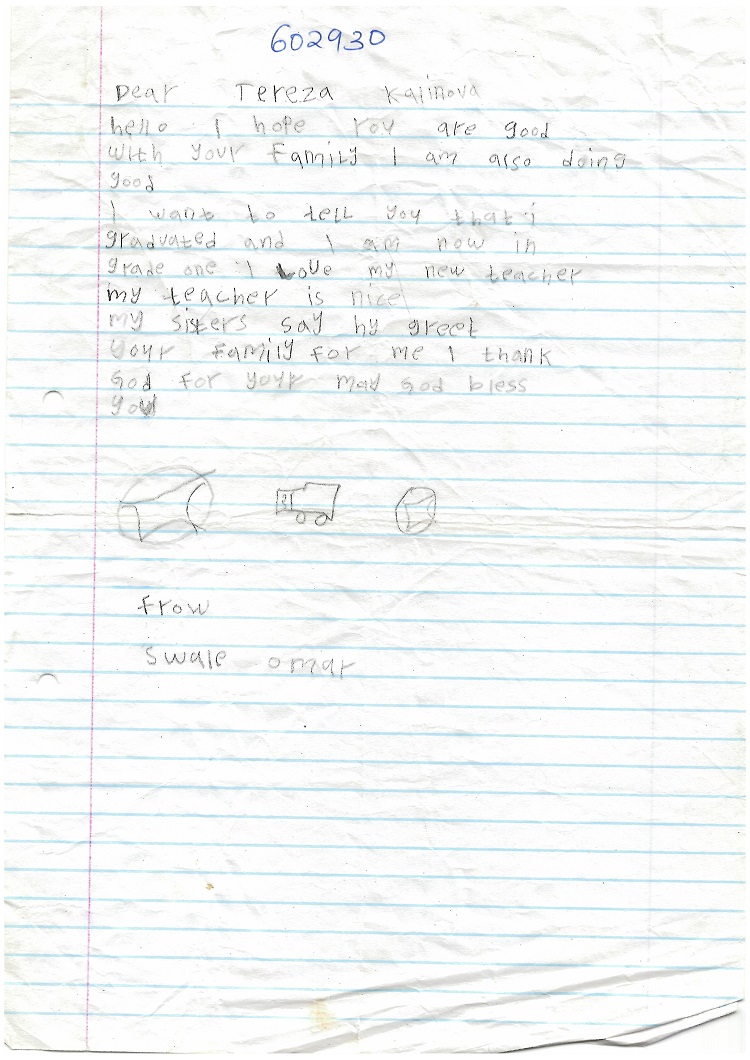 602930
Dear Tereza Kalinova
hello I hope You are good
with your Family I am also doing
good
I want to tell you that i
graduated and I am now in
grade one I Love my new teacher
my teacher is nice
my sisters say hy greet
your family for me I thank
God for your may God bless
you
From
Swale omar